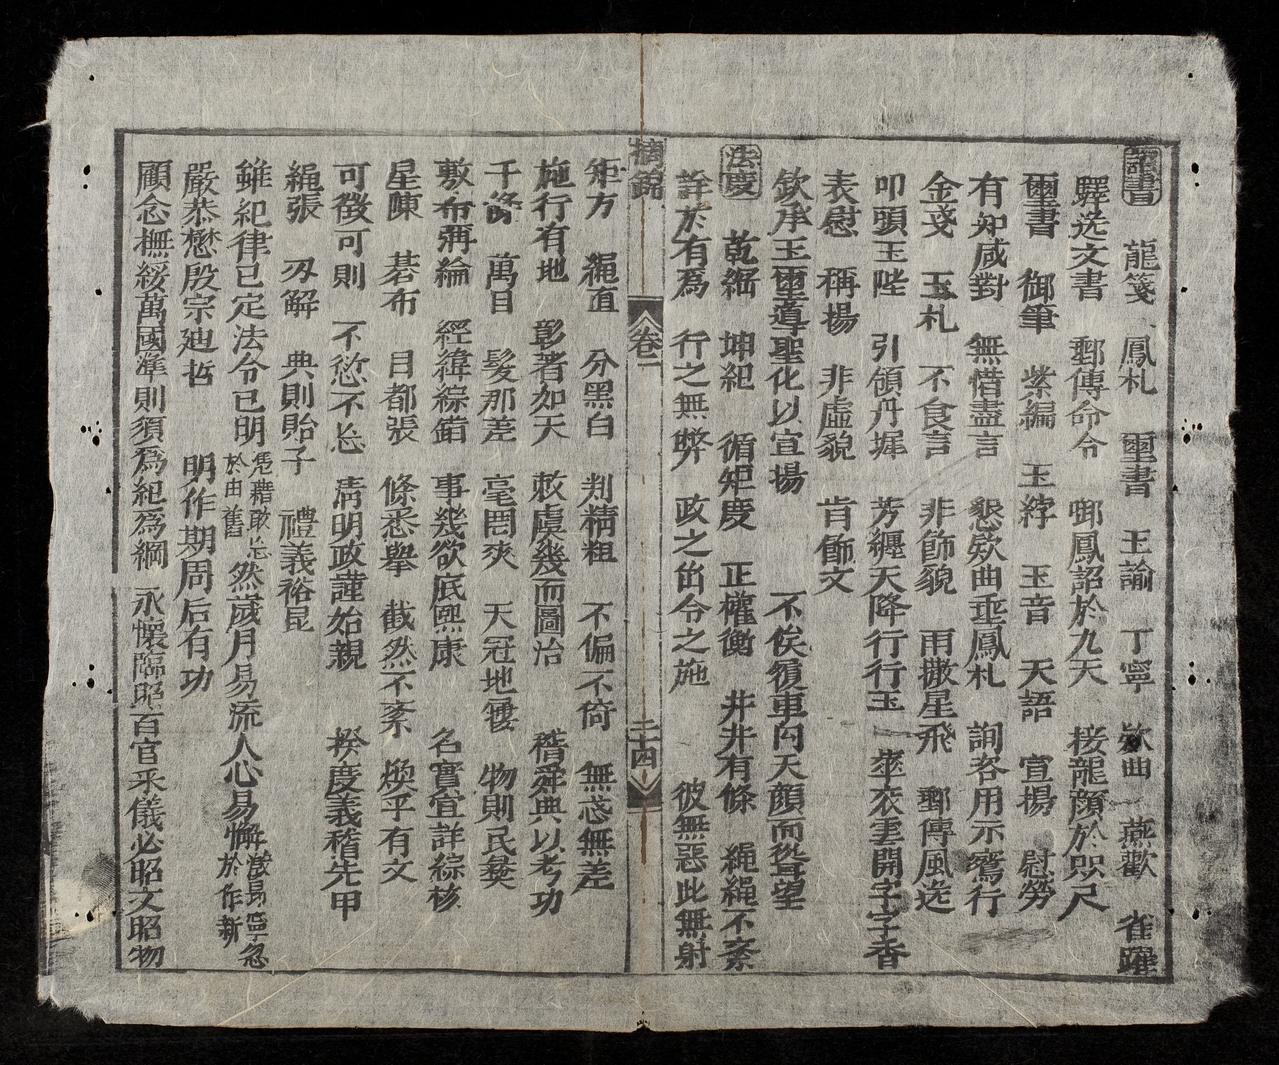 詔書 龍箋 鳳札 璽書 玉諭 丁寧 欵曲 燕歡 雀躍
驛迭文書 郵傳命令 啣鳳詔於九天 接龍顔於咫尺
璽書 御筆 紫編 玉綍 玉音 天語 宣揚 慰勞
有知咸對 無惜盡言 懇欵曲垂鳳札 詢咨用示鴛行
金戔 玉札 不食言 非飾貌 雨撒星飛 郵傳風迭
叩頭玉陛 引領丹墀 芳纏天降行行玉 衣雲開字字香
表慰 稱揚 非虛貌 肯飾文
欽承玉璽導聖化以宣場 不俟復車閃天顔而聳望
法度 乾綱 坤紀 循矩度 正權衡 井井有條 繩繩不紊
詮於有爲 行之無弊 政之出令之施 彼無惡此無射
摘錦 卷二 二十四
矩方 繩直 分黑白 判精粗 不偏不倚 無忒無差
施行有地 彰著如天 敕虞幾而圖治 稽舜典以考功
千條 萬目 髮那差 毫罔爽 天冠地履 物則民彝
敷布彌綸 經緯綜錯 事幾欲底熙康 名實宜詳綜核
星陳 碁布 目都張 條悉舉 截然不紊 煥乎有文
可徵可則 不愆不忘 淸明政謹始親 揆度義稽先甲
繩張 刃解 典則貽子 禮義裕昆
雖紀律已定法令已明 凭藉敢忘於由舊 然歲月易流人心易懈 澂易寧忽於作新
嚴恭懋殷宗迪哲 明作期周后有功
顧念撫綏萬國準則須爲紀爲綱 永懷臨昭百官采儀必昭文昭物